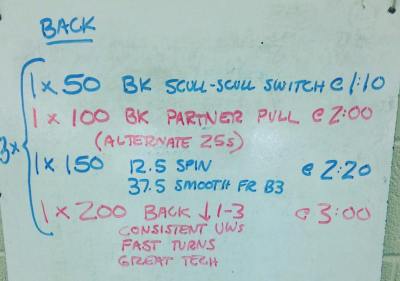 BACK
3x
1 x 50 BK SCULL-SCULL SWITCH @ 1:10
1 x 100 BK PARTNER PULL @ 2:00
(ALTERNATE 25s)
1 x 150 12.5 SPIN @ 2:20
37.5 SMOOTH FR B3
1 x 200 BACK ↓ 1-3 @ 3:00
CONSISTENT UWS
FAST TURNS
GREAT TECH